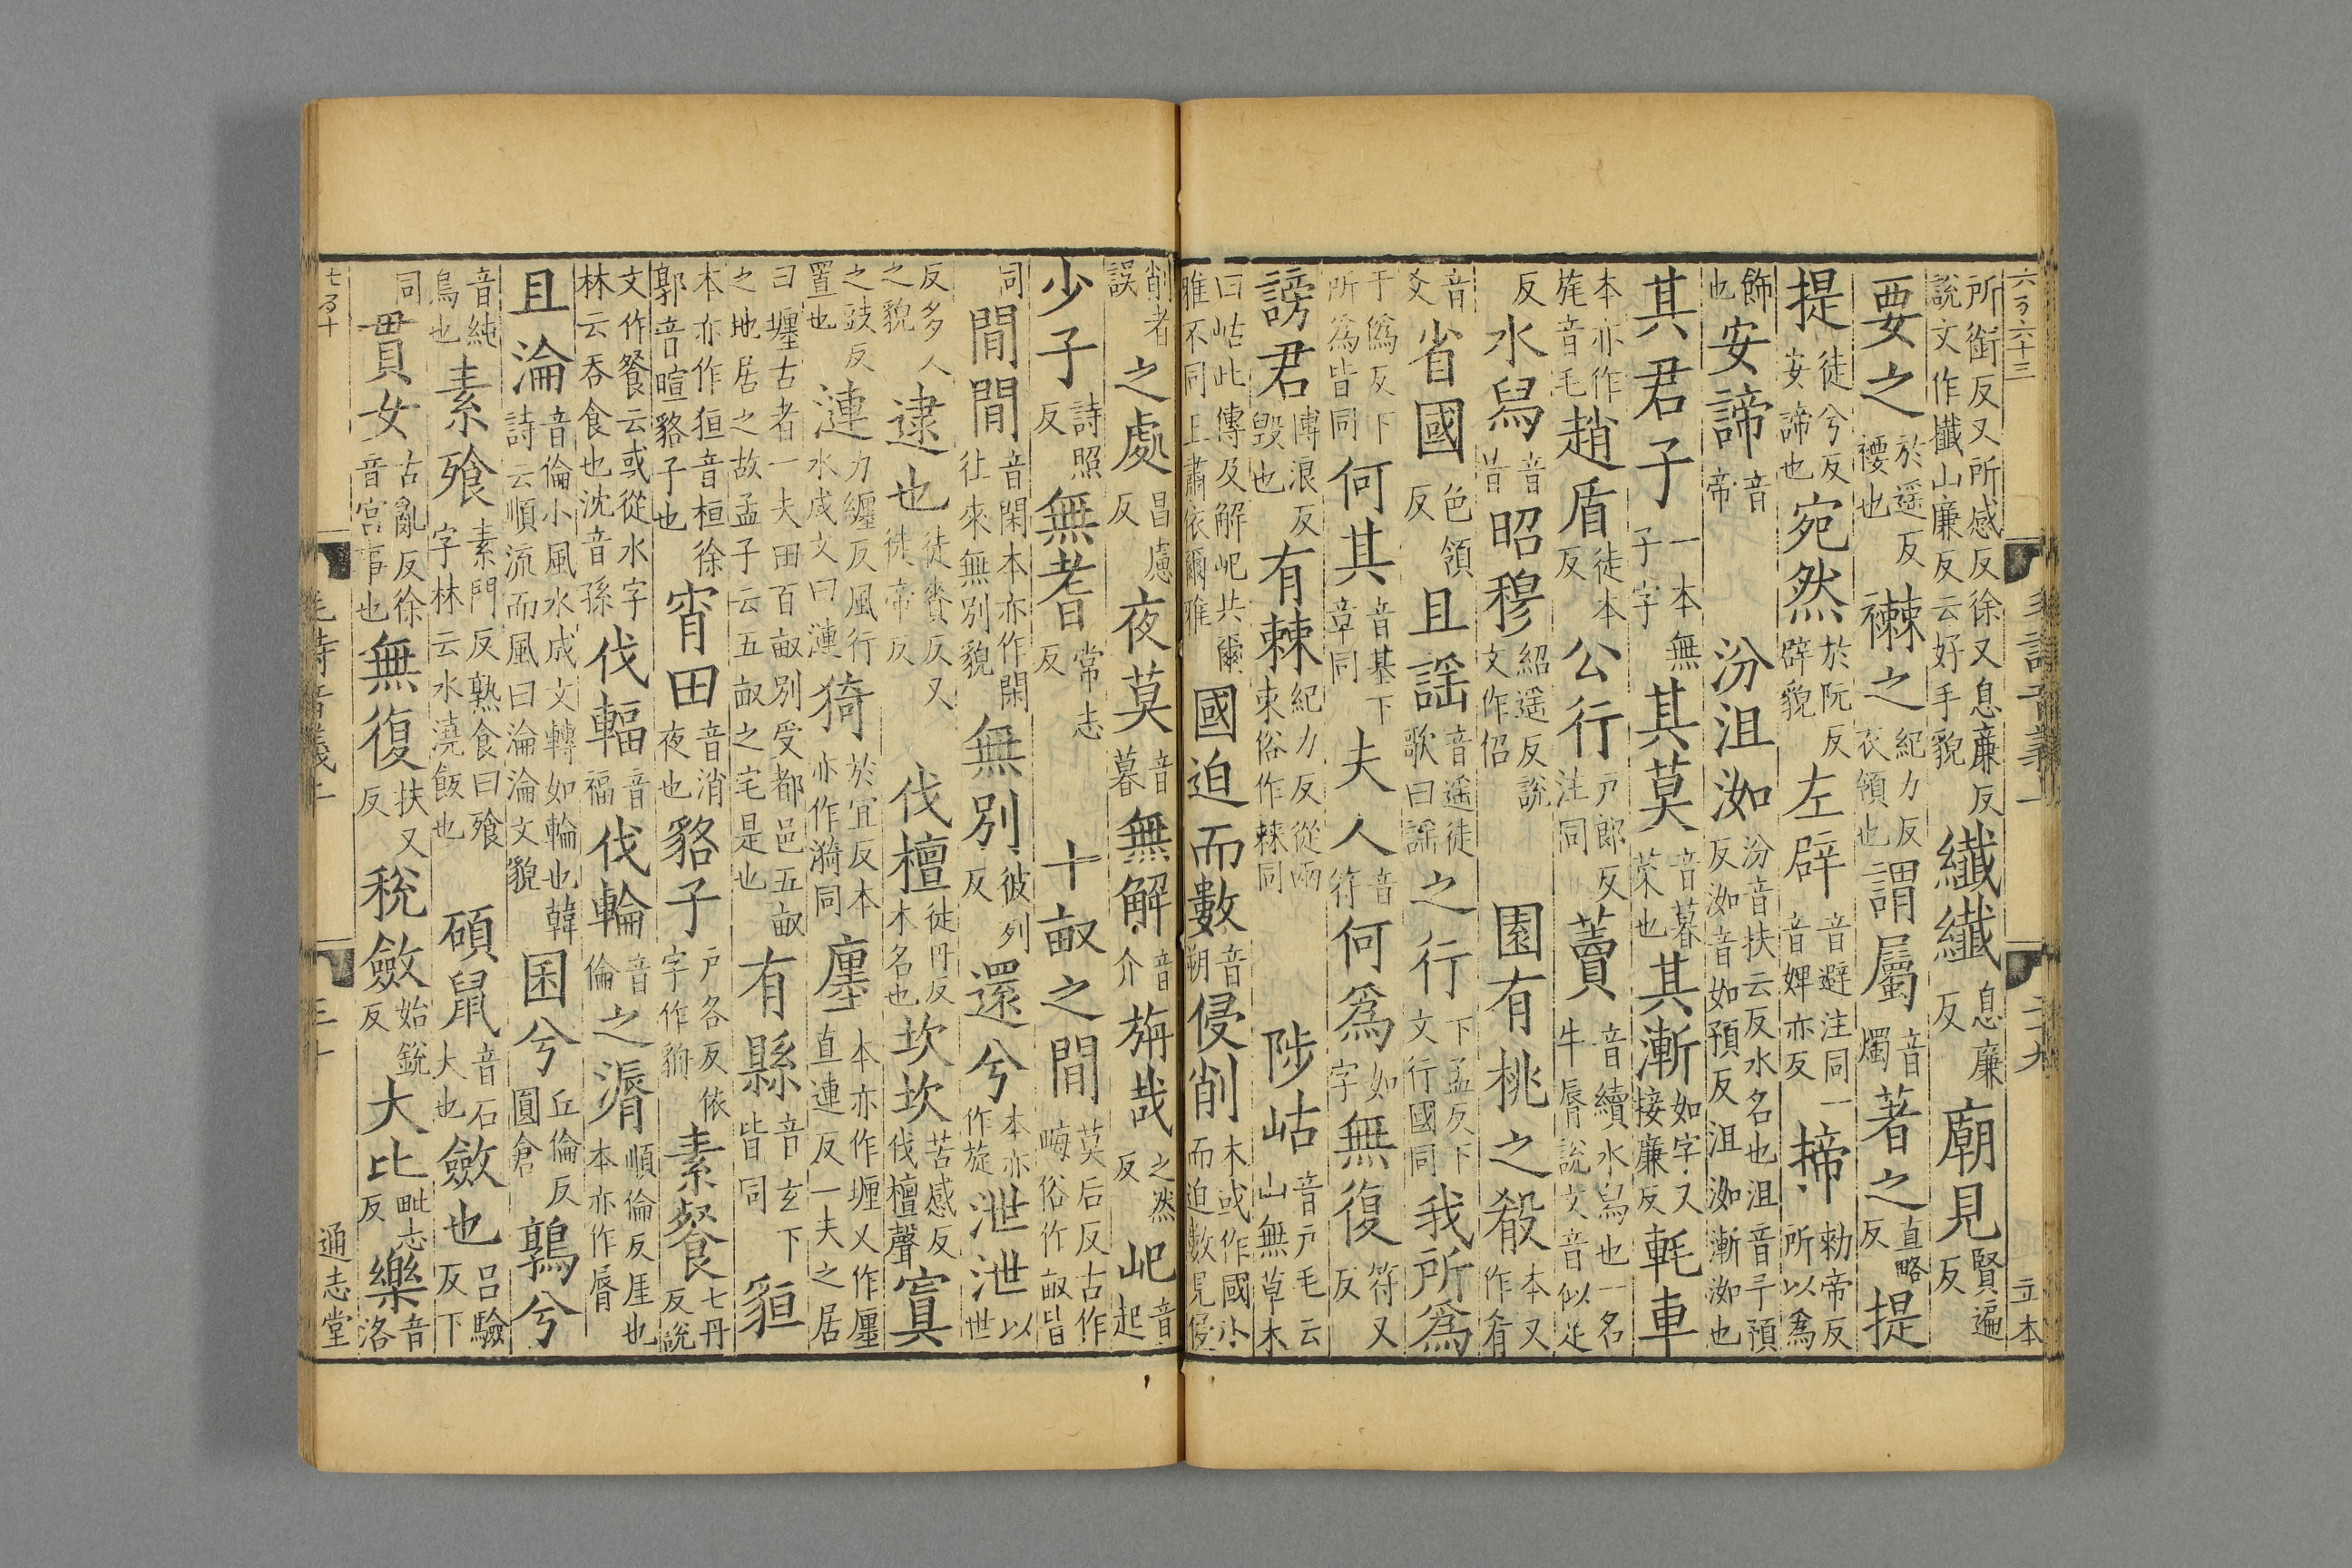 六百六十三 毛詩音義上 二十九 立本
所銜反又所感反徐又息廉反說文作攕山廉反云好手貌 纖纖 息廉反 廟見 賢遍反
要之 於遥反䙅也 襋之 紀力反衣領也 謂屬 音燭 著之 直略反 提
提 徒兮反安諦也 宛然 於阮反辟貌 左辟 音避注同一音婢亦反 揥 勑帝反所以為
飾也 安諦 音帝 汾沮洳 汾音扶云反水名也沮音子預反洳音如預反沮洳漸洳也
其君子 一本無子字 其莫 音暮菜也 其漸 如字又接廉反 軞車
本亦作旄音毛 趙盾 徒本反 公行 戶郎反注同 藚 音續水舄也一名牛脣說文音似足
反 水舄 音昔 昭穆 紹遥反說文作佋 園有桃之殽 本又作肴
音爻 省國 色領反 且謡 音遥徒歌曰謡 之行 下孟反下文行國同 我所爲
于僞反下所爲皆同 何其 音基下章同 夫人 音符 何爲 如字 無復 符又反
謗君 博浪反毁也 有棘 紀力反從兩朿俗作𣗥同 陟岵 音戶毛云山無草木
曰岵此傳及解屺共爾雅不同王肅依爾雅 國迫而數 音朔 侵削 本或作國小而迫數見侵
削者誤 之處 昌慮反 夜莫 音暮 無解 音介 旃哉 之然反 屺 音起
少子 詩照反 無耆 常志反 十畝之間 莫后反古作畮俗作畆皆
同 閒閒 音閑本亦作閑往來無別貌 無別 彼列反 還兮 本亦作旋 泄泄 以世
反多人之貌 逮也 徒賚反又徒帝反 伐檀 徒丹反木名也 坎坎 苦感反伐檀聲 寘
之豉反置也 漣 力纏反風行水成文曰漣 猗 於宜反本亦作漪同 廛 本亦作㕓又作厘直連反一夫之居
曰壥古者一夫田百畝別受都邑五畝之地居之故孟子云五畝之宅是也 有縣 音玄下皆同 貆
本亦作狟音桓徐郭音暄貉子也 宵田 音消夜也 貉子 戶各反依字作貈 素餐 七丹反說
文作餐云或從水字林云吞食也沈音孫 伐輻 音福 伐輪 音倫 之漘 順倫反厓也本亦作脣
且淪 音倫小風水成文轉如輪也韓詩云順流而風曰淪淪文貌 囷兮 丘倫反圓倉 鶉兮
音純鳥也 素飧 素門反熟食曰飧字林云水澆飯也 碩鼠 音石大也 斂也 呂驗反下
同 貫女 古亂反徐音官事也 無復 扶又反 稅斂 始銳反 大比 毗志反 樂 音洛
七百十 毛詩音義上 三十 通志堂